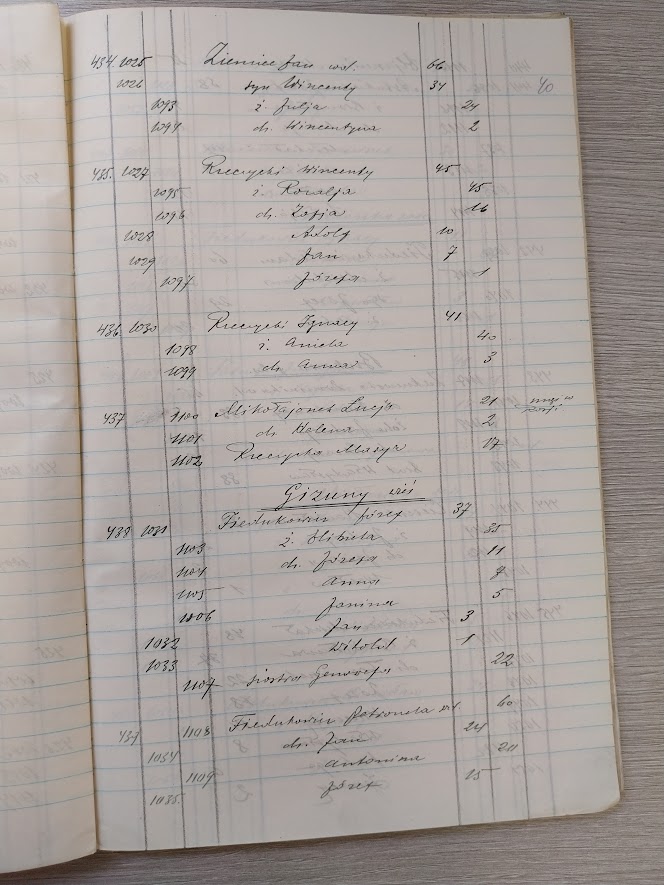 40
434 1025 Ziemiec Jan wd. 66
1026 syn Wincenty 34
1093 ż. Julja 24
1094 ch. Wincentyna 2
435. 1027 Rzeczycki Wincenty 45
1095 ż. Rozalja 45
1096 ch. Zofja 16
1028 Adolf 10
1029 Jan 7
1097 Józefa 1
436 1030 Rzeczycki Ignacy 41
1098 ż. Aniela 40
1099 ch. Anna 3
437 1100 Mikołajonek Łucja 21 mąż w
1101 ch. Helena 2
1102 Rzeczycka Marja 17
Gizuny wieś
438 1031 Fiedukowicz Józef 37
1103 ż. Elżbieta 35
1104 ch. Józefa 11
1105 Anna 7
1106 Janina 5
Jan 3
1032 Witold 1
1033
1107 siostra Genowefa 22
439 1108 Fiedukowicz Petronela wd. 60
1034 ch. Jan 24
1109 Antonina 20
1035 Józef 15